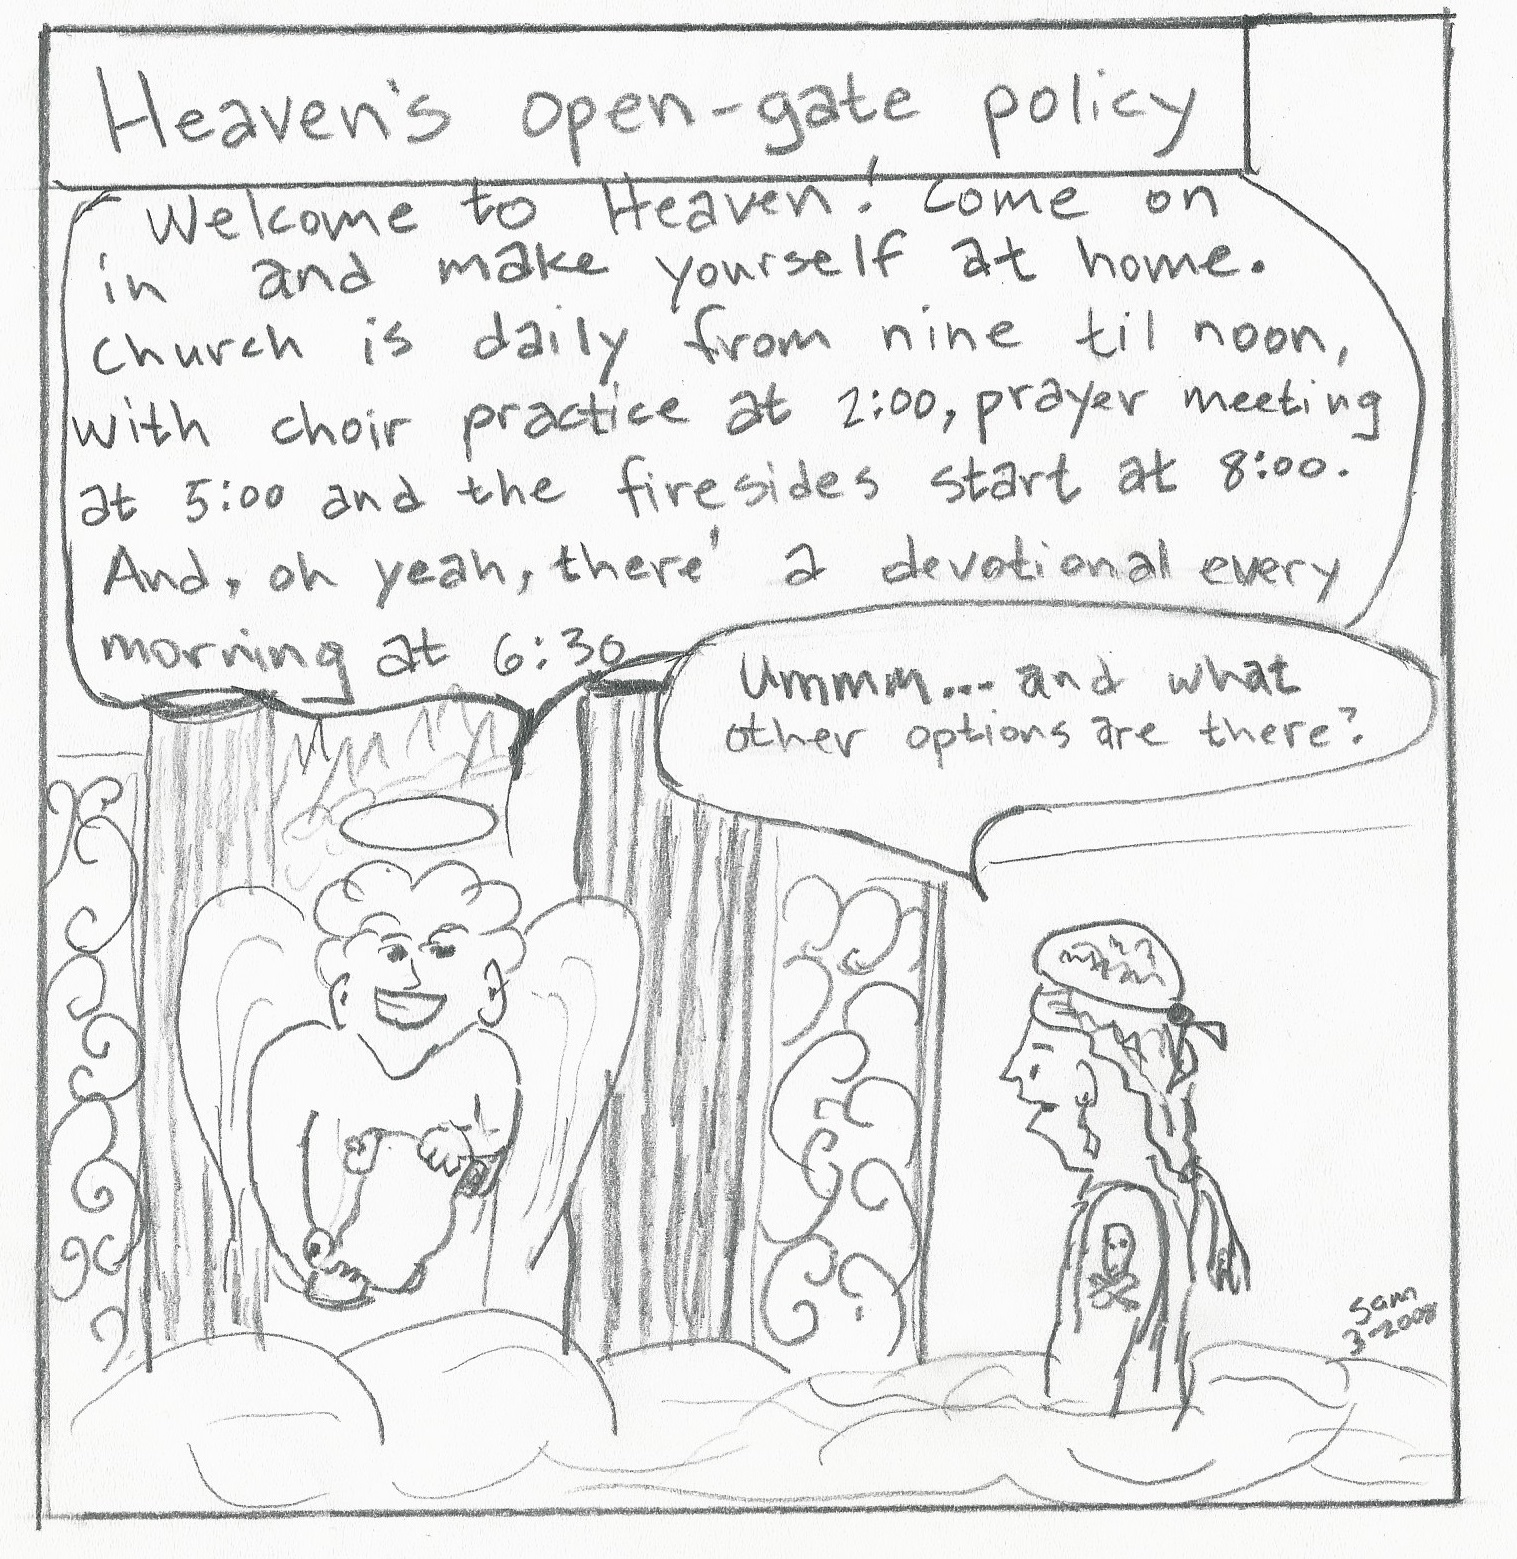 Heaven's open-gate policy
Welcome to Heaven! Come on
in and make yourself at home.
Church is daily from nine til noon,
with choir practice at 2:00, prayer meeting
at 5:00 and the firesides start at 8:00.
And, oh yeah, there' a devotional every
morning at 6:30
Ummm... and what
other options are there?
Sam
3-2008